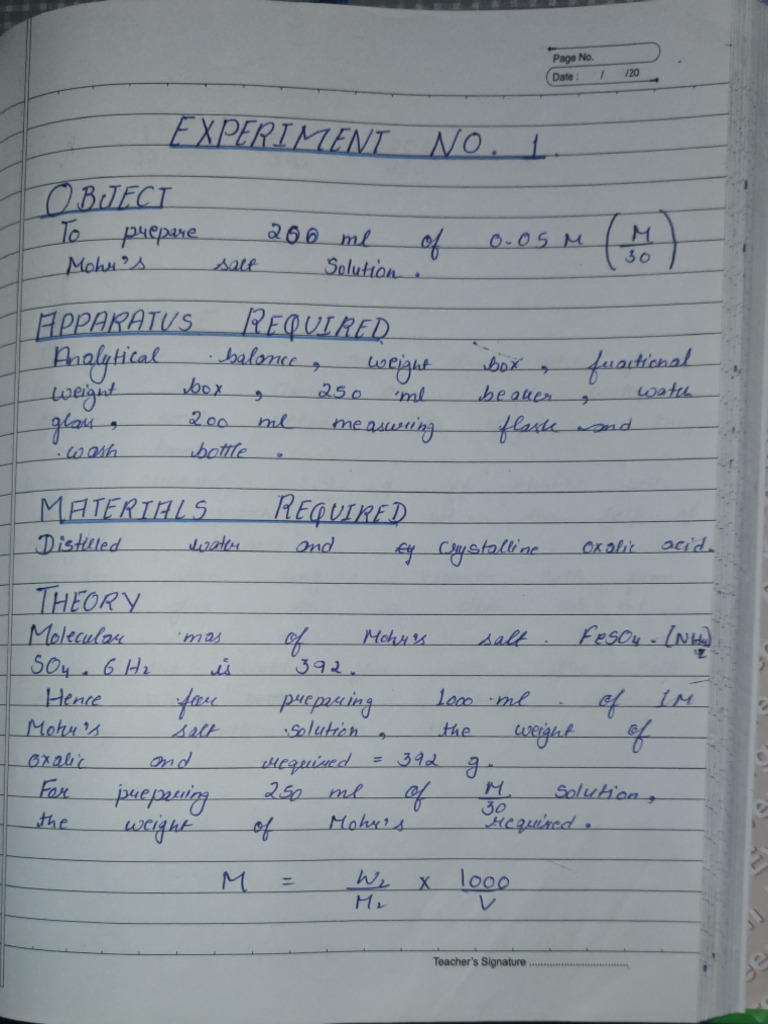 Page No.
Date : / /20
EXPERIMENT NO. 1.
OBJECT
To prepare 200 ml of 0.05 M (M/30)
Mohr's salt Solution.
APPARATUS REQUIRED
Analytical balance, weight box, fractional
weight box, 250 ml beaker, watch
glass, 200 ml measuring flask and
wash bottle.
MATERIALS REQUIRED
Distilled water and crystalline oxalic acid.
THEORY
Molecular mas of Mohr's salt. FeSO4.(NH4)2
SO4.6H2 is 392.
Hence for preparing 1000 ml. of 1M
Mohr's salt solution, the weight of
oxalic and required = 392 g.
For preparing 250 ml of M/30 solution,
the weight of Mohr's required.
M = W2/M2 x 1000/V
Teacher's Signature